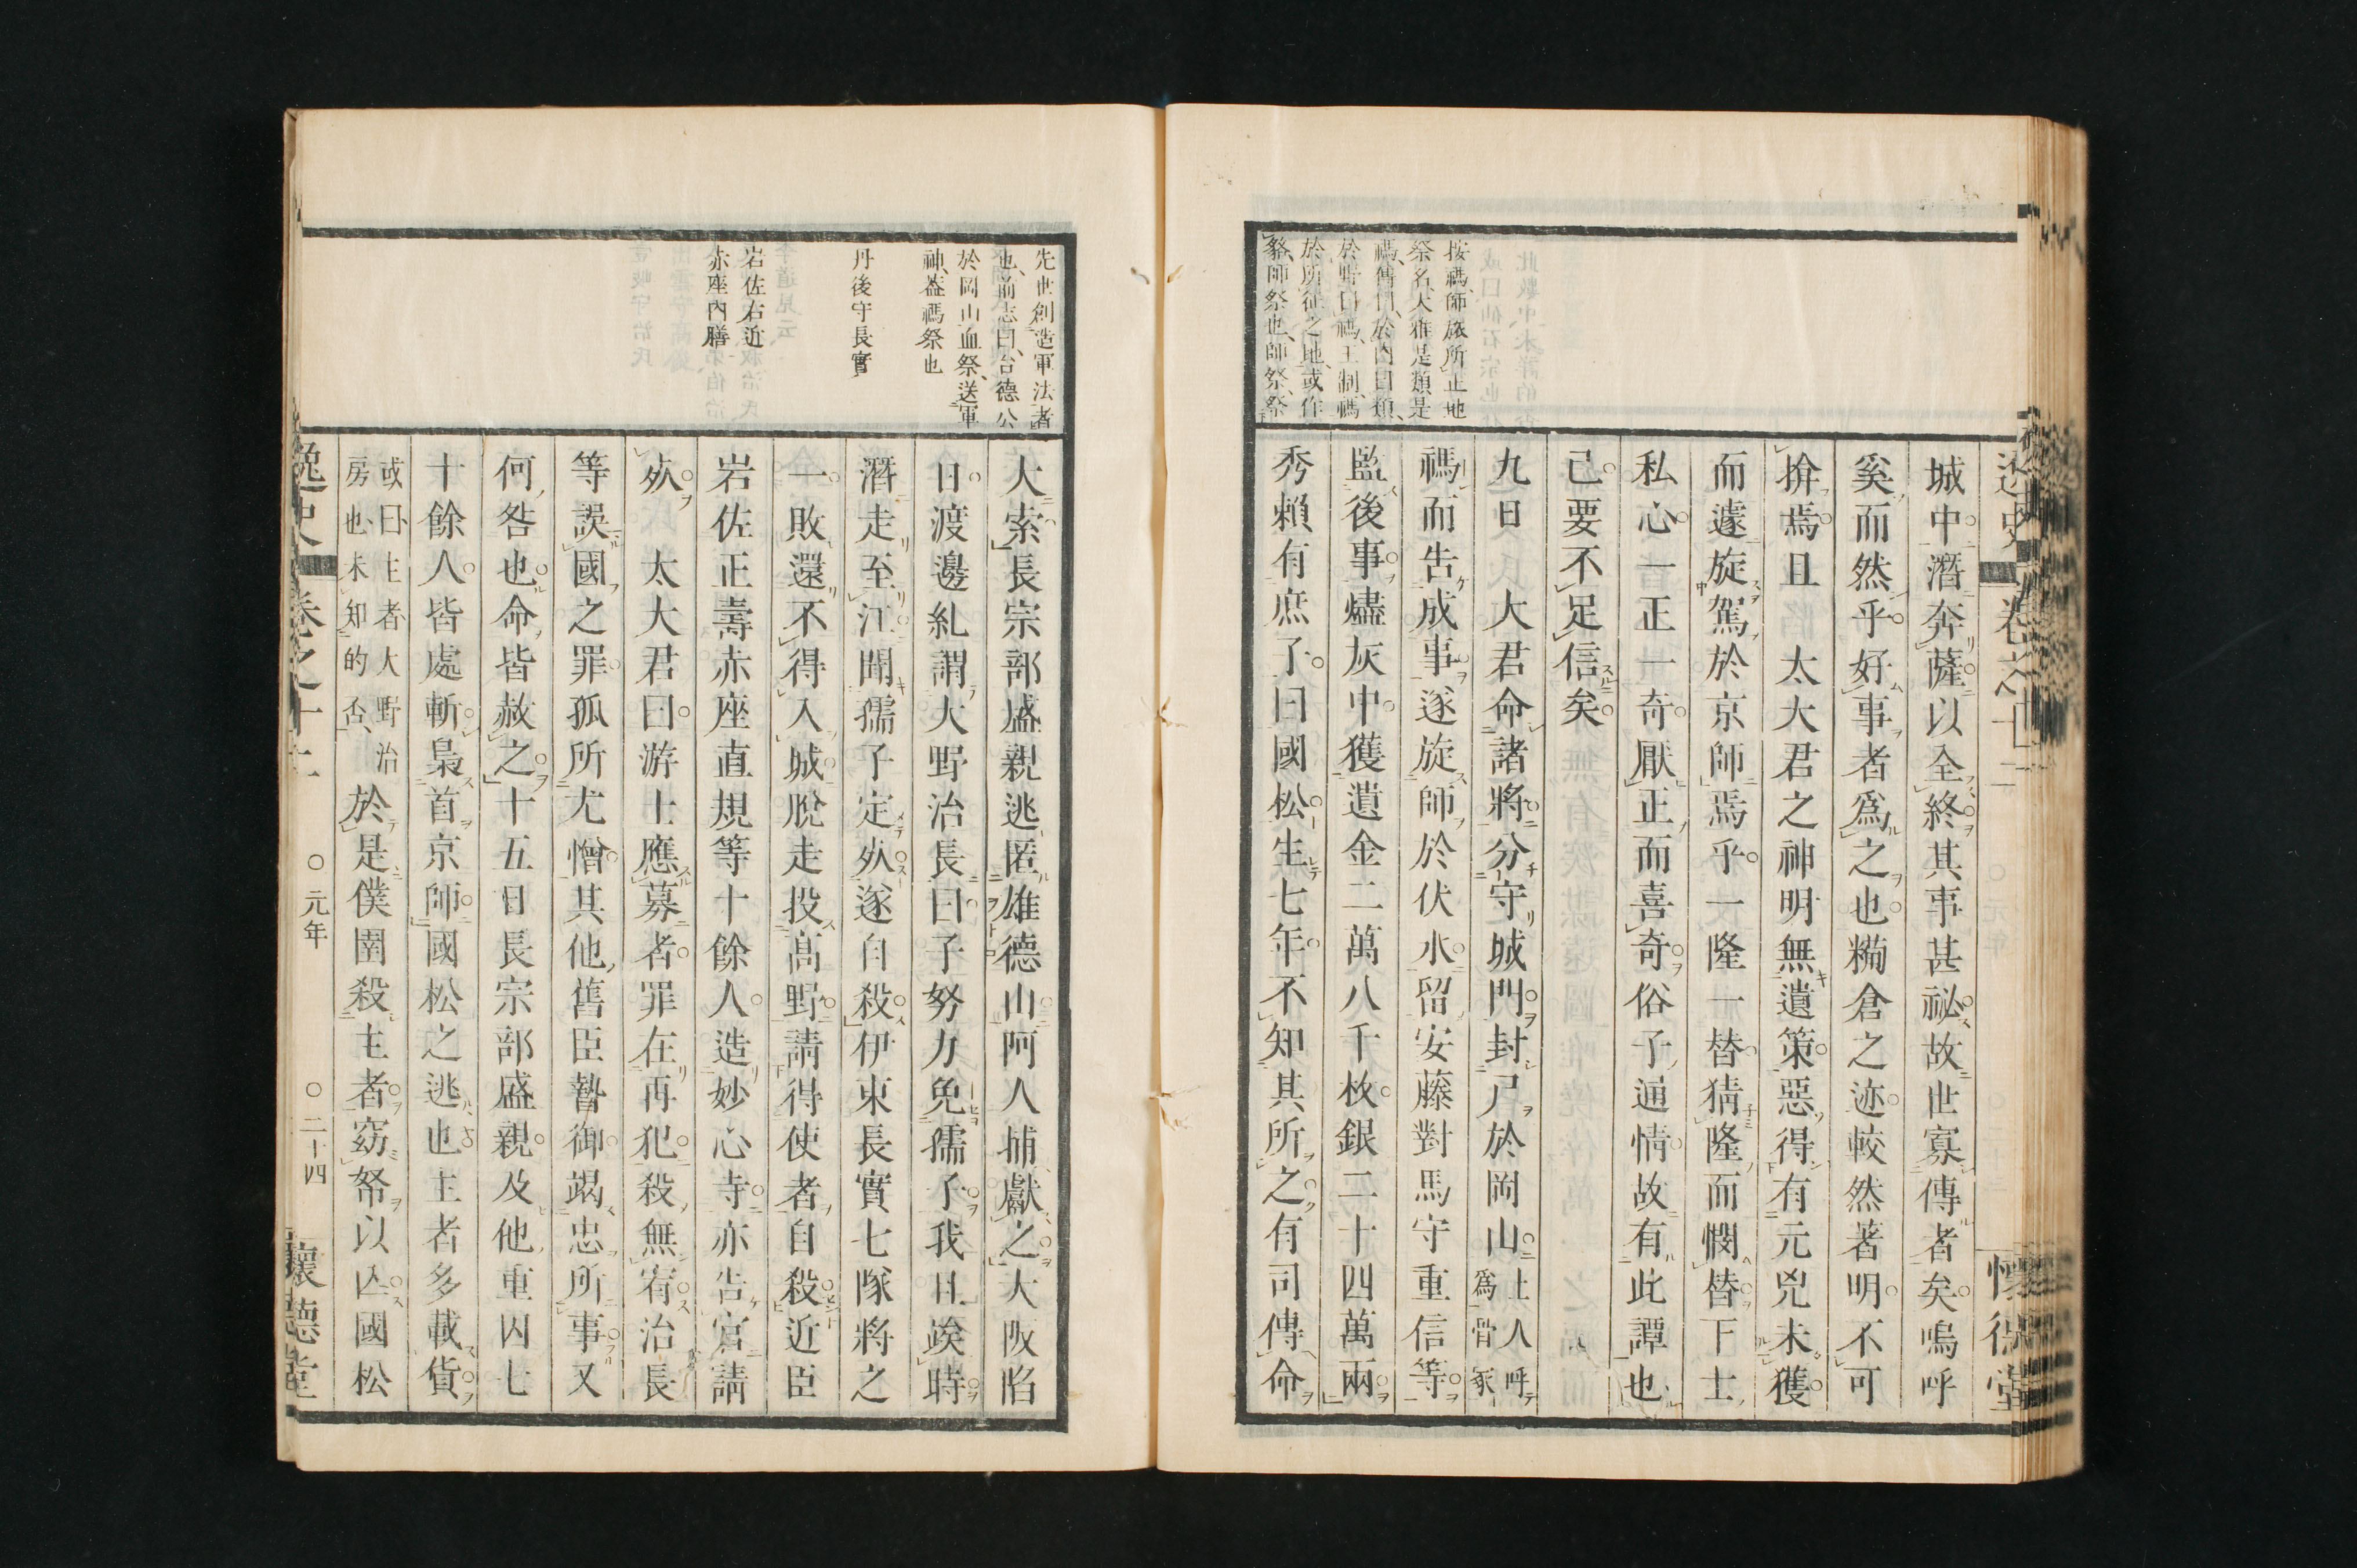 逸史 卷之十二 懷德堂
城中潛奔薩以全終其事甚祕故世寡傳者矣嗚呼
奚而然乎好事者爲之也糒倉之迹較然著明不可
揜焉且 太大君之神明無遺策惡得有元兇未獲
而遽旋駕於京師焉乎一隆一替猜隆而憫替下士
私心一正一奇厭正而喜奇俗子通情故有此譚也
己要不足信矣
九日 大君命諸將分守城門封尸於岡山土人呼爲骨冢
禡而告成事遂旋師於伏水留安藤對馬守重信等
監後事燼灰中獲遺金二萬八千枚銀二十四萬兩
秀賴有庶子曰國松生七年不知其所之有司傳命
按禡師旅所止地
祭名大雅是類是
禡傳曰於內曰類
於野曰禡王制禡
於所征之地或作
貉師祭也師祭祭
先世創造軍法者
也前志曰台德公
於岡山血祭送軍
神葢禡祭也
丹後守長實
岩佐右近
赤座內膳
大索長宗部盛親逃匿雄德山阿人捕獻之大阪陷
日渡邊糺謂大野治長曰子努力免孺子我且竢時
潛走至江聞孺子定死遂自殺伊東長實七隊將之
一敗還不得入城脫走投高野請得使者自殺近臣
岩佐正壽赤座直規等十餘人造妙心寺亦告官請
死 太大君曰游士應募者罪在再犯殺無宥治長
等誤國之罪孤所尤憎其他舊臣暬御竭忠所事又
何咎也命皆赦之十五日長宗部盛親及他重囚七
十餘人皆處斬梟首京師國松之逃也主者多載貨
或曰主者大野治
房也未知的否
於是僕圉殺主者竊帑以亾國松
逸史 卷之十二 〇元年 〇二十四 懷德堂